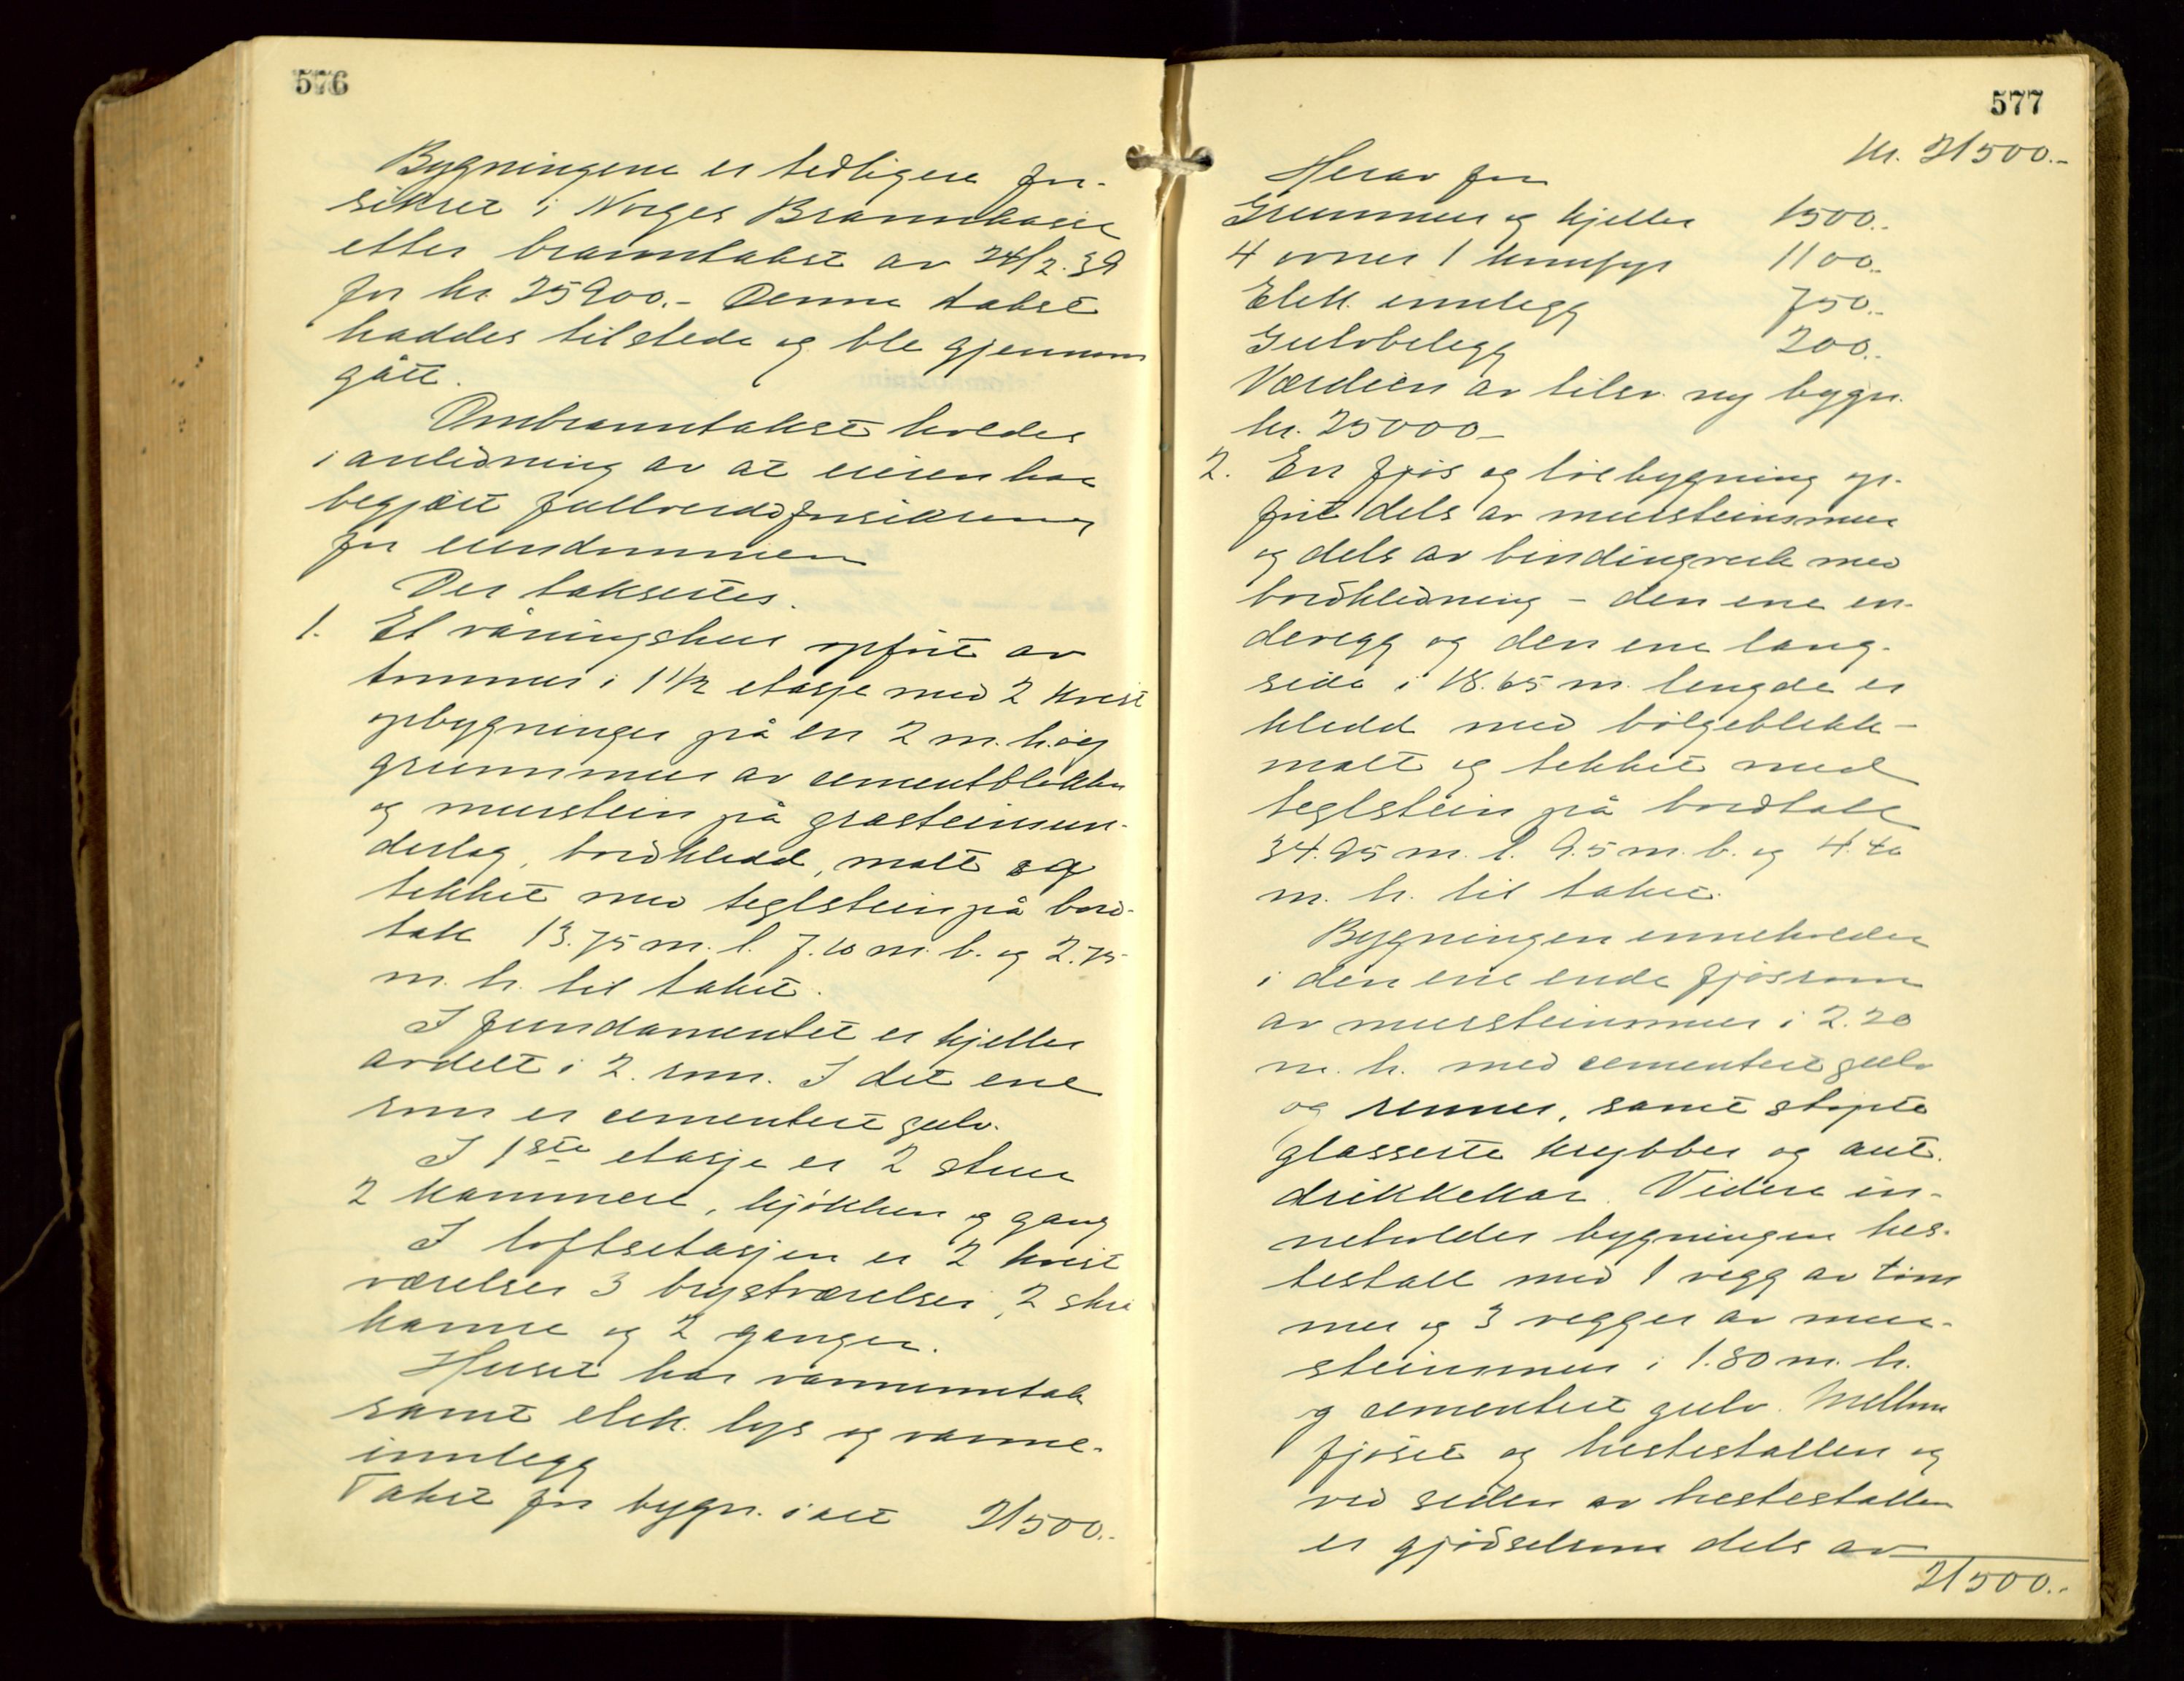 576
Bygningene er tidligere for-
sikret i Norges Brannkasse
etter branntakst av 24/2.39
for kr. 25900.- Denne takst
haddes tilstede og ble gjennom
gått.
Ombranntakst holdes
i anledning av at eieren har
begjært fullverdiforsikring
for eiendommen
Der taksertes.
1. Et våningshus opført av
tømmer i 1 1/2 etasje med 2 kvist
opbygninger på en 2 m. høi
grunnmur av cementblokker
og murstein på gråsteinsun-
derlag, bordkledd, malt og
tekket med teglstein på bord-
tak 13.75 m. l. 7.10 m. b. og 2.75
m. h. til taket.
I fundamentet er kjeller
avdelt i 2. rom. I det ene
rom er cementert gulv.
I 1ste etasje er 2 stuer
2 kammers, kjøkken og gang
I loftsetasjen er 2 kvist
værelser 3 brystværelser, 2 skrå
kamre og 2 ganger.
Huset har vanninntak
samt elek. lys og varme-
innlegg
Takst for bygn. i alt 21500.-
577
kr. 21500.-
Herav for
Grunnmur og kjeller 1500.-
4 ovner 1 komfyr 1100.-
Elek. innlegg 750.-
Gulvbelegg 200.-
Værdien av tilsv. ny bygn.
kr. 25000.-
2. En fjøs og løebygning op-
ført dels av mursteinsmur
og dels av bindingverk med
bordkledning - den ene en-
devegg og den ene lang-
side i 18.65 m. lengde er
kledd med bølgeblekk -
malt og tekket med
teglstein på bordtak
34.95 m. l. 9.5 m. b. og 4.40
m. h. til taket.
Bygningen inneholder
i den ene ende fjøsrom
av mursteinsmur i 2.20
m. h. med cementert gulv
og renner, samt støpte
glasserte krybber og aut.
drikkekar. Videre in-
neholder bygningen hes-
testall med 1 vegg av tøm
mer og 3 vegger av mur-
steinsmur i 1.80 m. h.
og cementert gulv. Mellom
fjøset og hestestallen og
ved siden av hestestallen
er gjødselrom dels av
21500.-